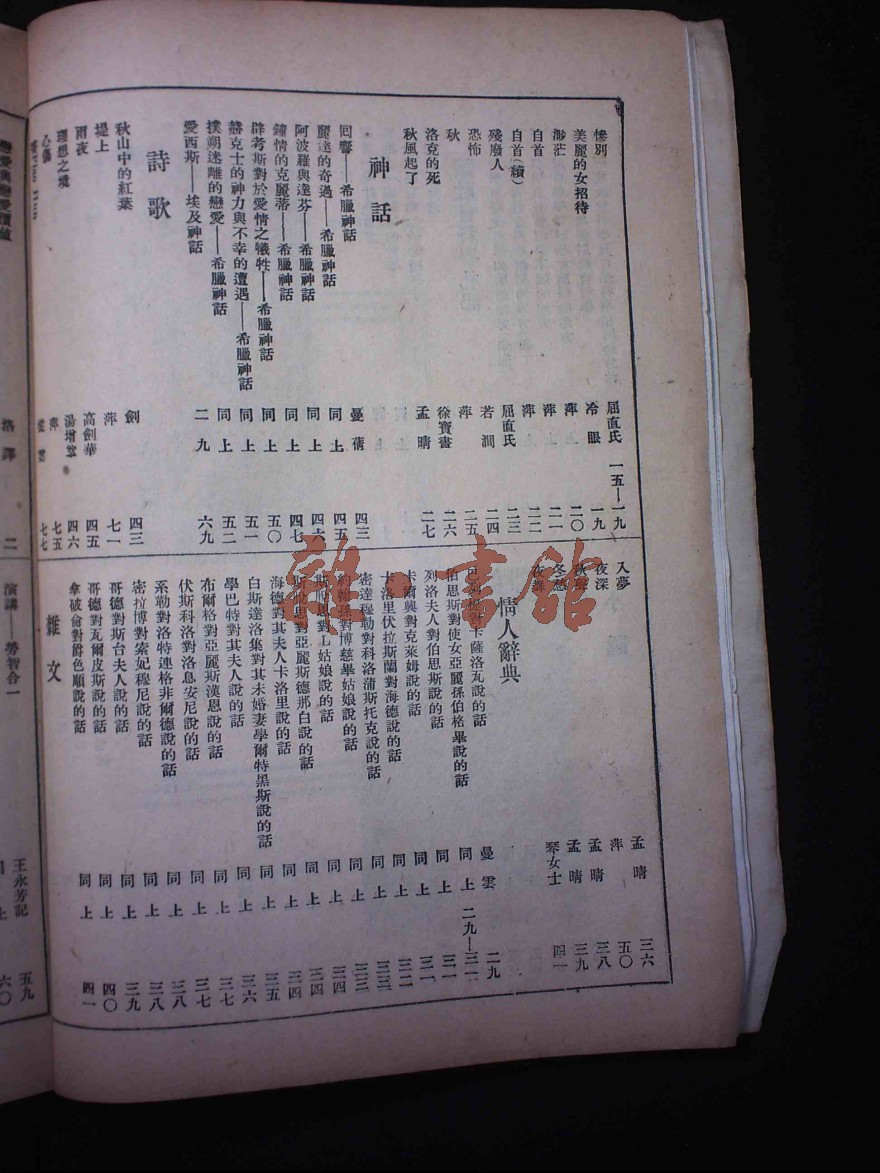 慘別 屈直氏 一五—一九
美麗的女招待 冷眼 一九
渺茫 萍 二〇
自首 萍 二一
自首(續) 萍 二二
殘廢人 屈直氏 二三
恐怖 若潤 二四
秋 萍 二五
洛克的死 徐寶書 二六
秋風起了 孟晴 二七
神話
回響——希臘神話 曼蒨 四三
麗達的奇遇——希臘神話 同上 四五
阿波羅與達芬——希臘神話 同上 四六
鐘情的克麗蒂——希臘神話 同上 四七
辟考斯對於愛情之犧牲——希臘神話 同上 五〇
赫克士的神力與不幸的遭遇——希臘神話 同上 五一
撲朔迷離的戀愛——希臘神話 同上 五二
愛西斯——埃及神話 二九 六九
詩歌
秋山中的紅葉 劍 四三
堤上 萍 七一
雨夜 高劍華 四五
理想之境 湯增 四六
心傷 萍 七五
七七
入夢 孟晴 三六
夜深 萍 五〇
秋 孟晴 三八
冬愁 孟晴 三九
夜舞 琴女士 四一
情人辭典
對卡薩洛瓦說的話 曼雲 二九
伯思斯對使女亞麗孫伯格畢說的話 同上 二九—三一
列洛夫人對伯思斯說的話 同上 三一
卡爾奧對克萊姆說的話 同上 三一
卡洛里伏拉斯蘭對海德說的話 同上 三二
密達穆勒對科洛蒲斯托克說的話 同上 三三
約翰孫對博慈畢姑娘說的話 同上 三三
斯帖恩對L姑娘說的話 同上 三四
斯帖恩對亞麗斯德那白說的話 同上 三四
海德對其夫人卡洛里說的話 同上 三四
白斯達洛集對其未婚妻學爾特黑斯說的話 同上 三五
學巴特對其夫人說的話 同上 三六
布爾格對亞麗斯漢恩說的話 同上 三七
伏斯科洛對洛息安尼說的話 同上 三七
系勒對洛特連格非爾德說的話 同上 三八
密拉博對索妃穆尼說的話 同上 三八
哥德對斯台夫人說的話 同上 三九
哥德對瓦爾皮斯說的話 同上 四〇
拿破侖對爵色順說的話 同上 四一
雜文
演講——勞智合一 王永芳記 五九
同上 六〇
戀愛與戀愛價值 洛譯 二
雜·書館